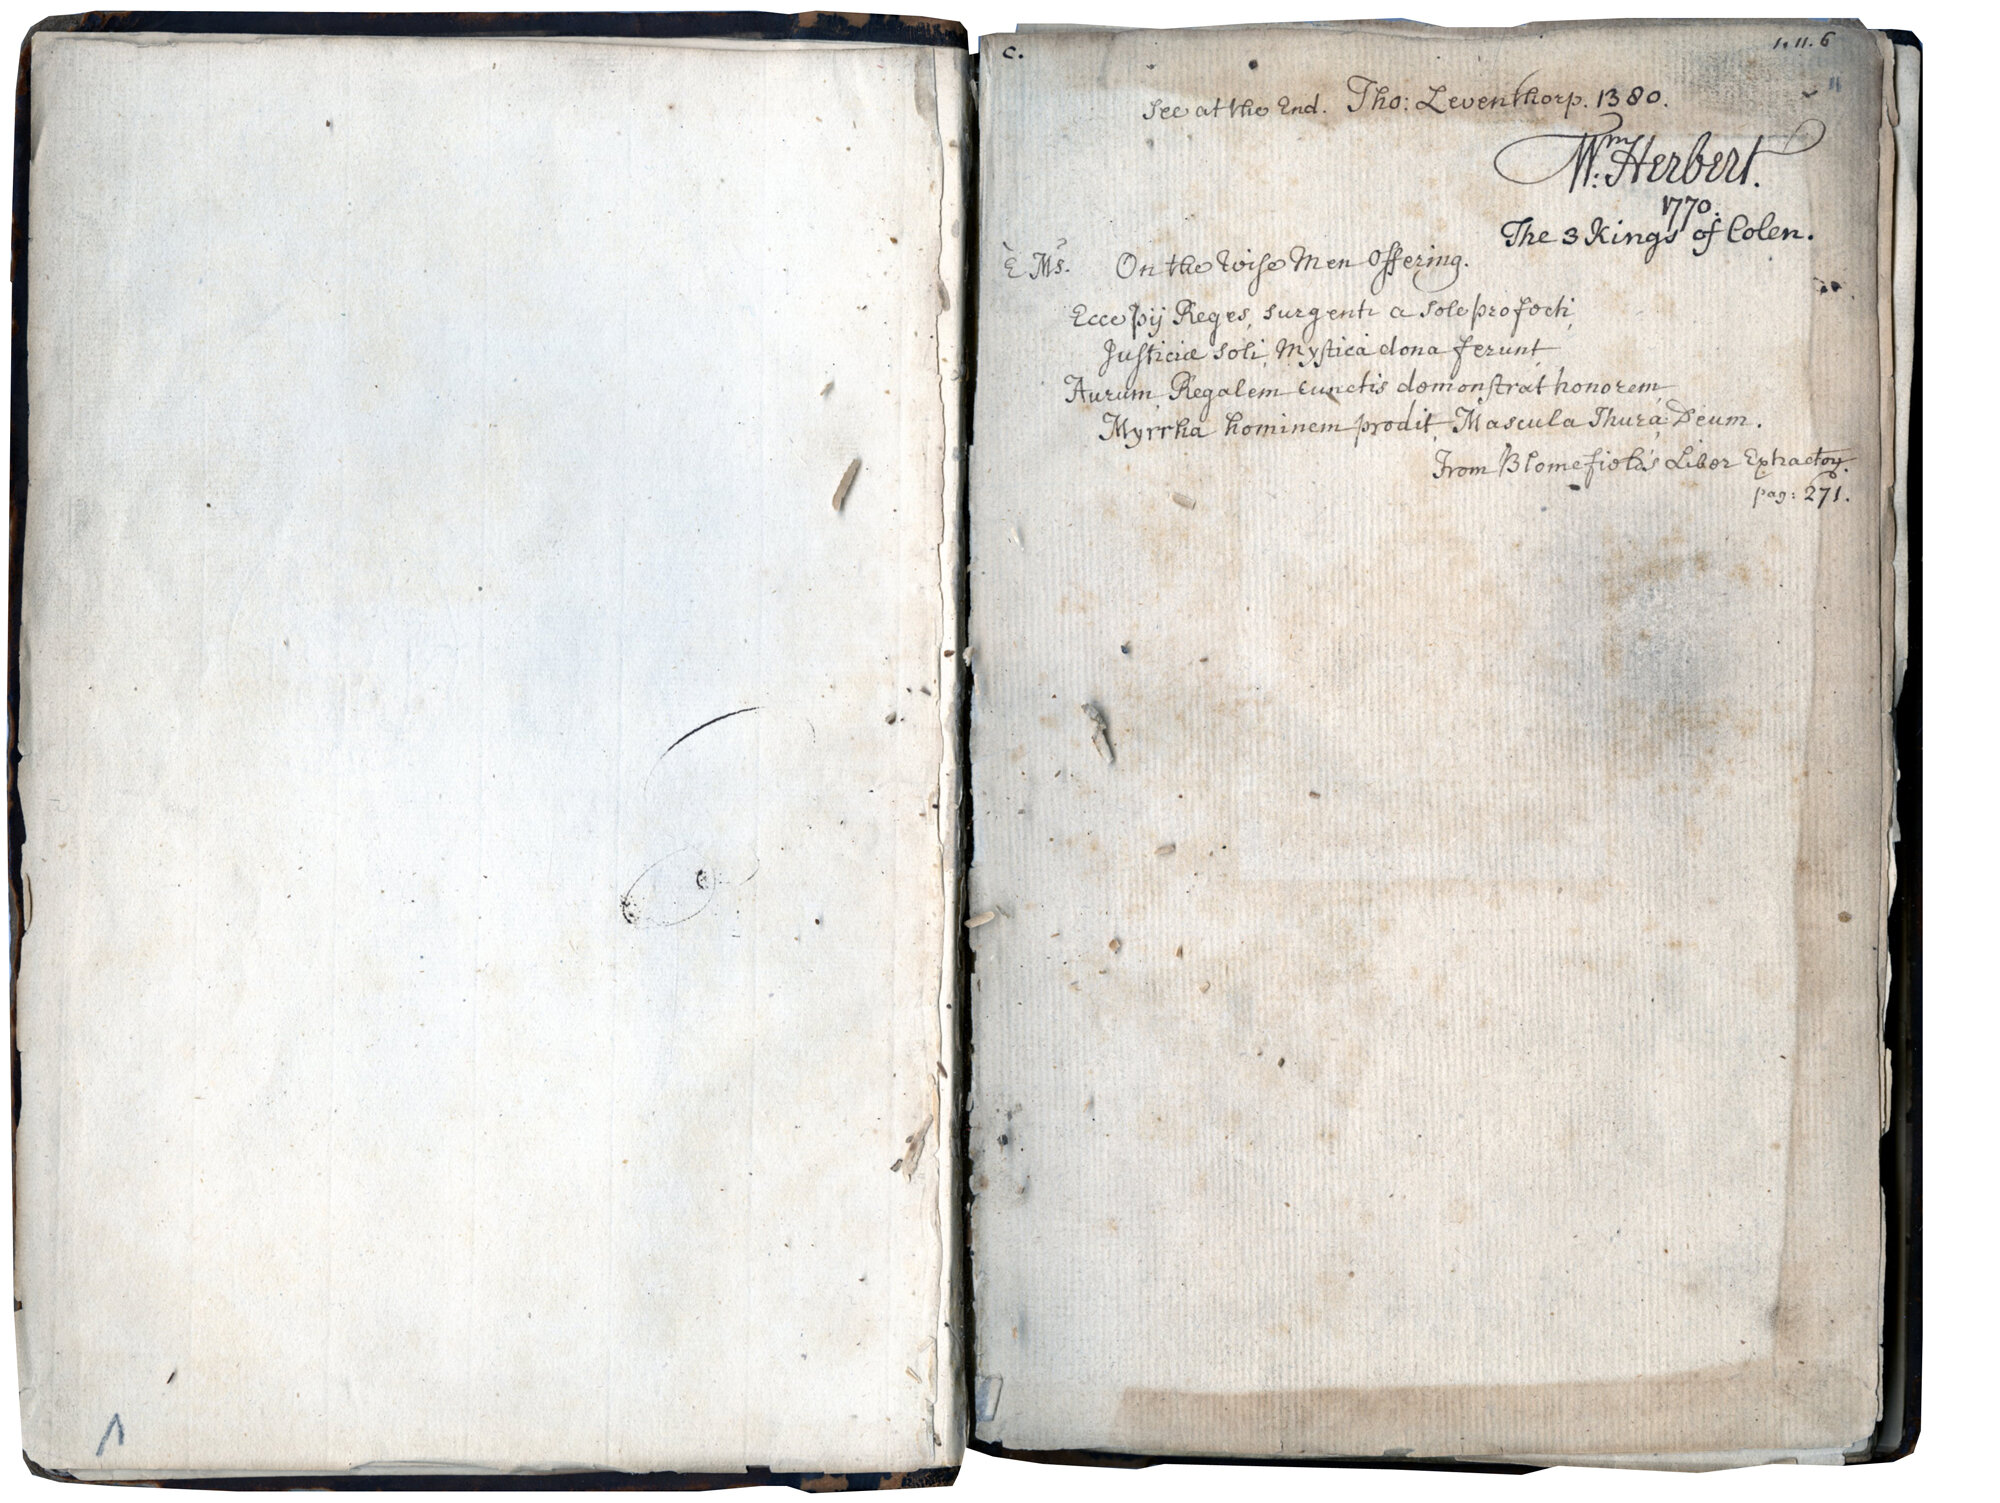 c. 1. 11. 6
See at the End. Tho: Leventhorp. 1380.
Wm: Herbert.
1770.
The 3 Kings of Colen.
È Ms. On the Wise Men Offering.
Ecce pij Reges, surgenti a Sole profecti,
Justiciæ Soli, Mystica dona ferunt
Aurum, Regalem cunctis demonstrat honorem,
Myrrha hominem prodit, Mascula Thura, Deum.
From Blomefield's Liber Extractoꝝ.
pag: 271.